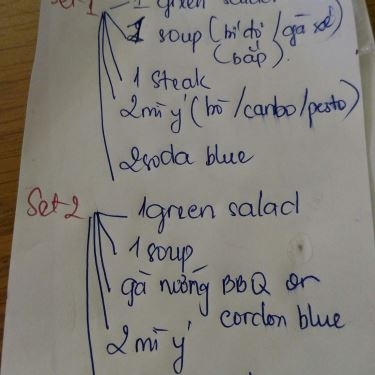 Set 1 - 1 green salad
1 soup (bí đỏ / gà xé)
(bắp).
1 steak
2 mì ý (bò / canbo / pesto)
2 soda blue
Set 2 - 1 green salad
1 soup
gà nướng BBQ or
cordon blue
2 mì ý